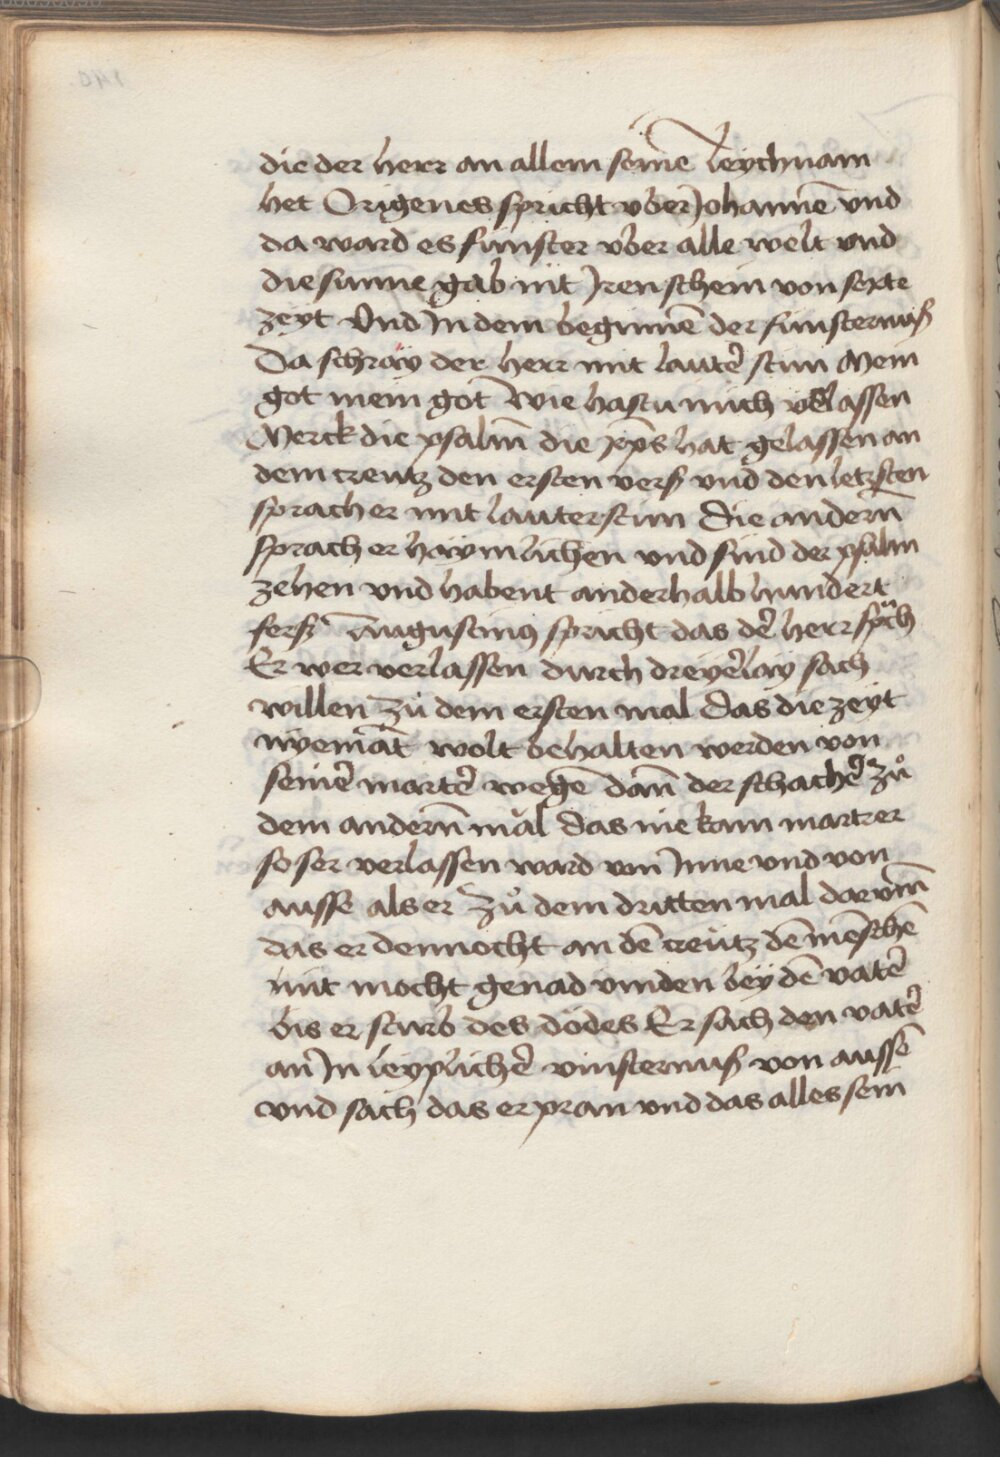 die der herr an allem seinē leychnam
het Origenes spricht vber Johannē vnd
da ward es finster vber alle welt vnd
die sunne gab nit Jren schein von sexte
zeyt Vnd In dem beginnē der finsternuß
Da schray der herr mit lautē stim Mein
got mein got wie hastu mich v̄lassen
Merck die psalm̄ die xp̄s hat gelassen an
dem creutz den ersten verß vnd den letzsten
sprach er mit lauter stim die andern̄
sprach er haymlichen vnd sind der psalm
zehen vnd habent anderhalb hundert
ferß Augustinus spricht das dē herr spͣch
Er wer verlassen durch dreyēlay sach
willen Zů dem ersten mal das die zeyt
nyemāt wolt behalten werden von
seinē martē wegē dan̄ der schachē Zů
dem andern̄ mal das nie kain martrer
so ser verlassen ward von Inne vnd von
ausse als er Zů dem dritten mal darvm̄
das er dennocht an dē creutz dē mēschē
nit mocht genad vinden bey dē vatē
bis er sturb des dodes Er sach den vatē
an In leyplichē vinsternuß von aussē
vnd sach das er pran vnd das alles sein